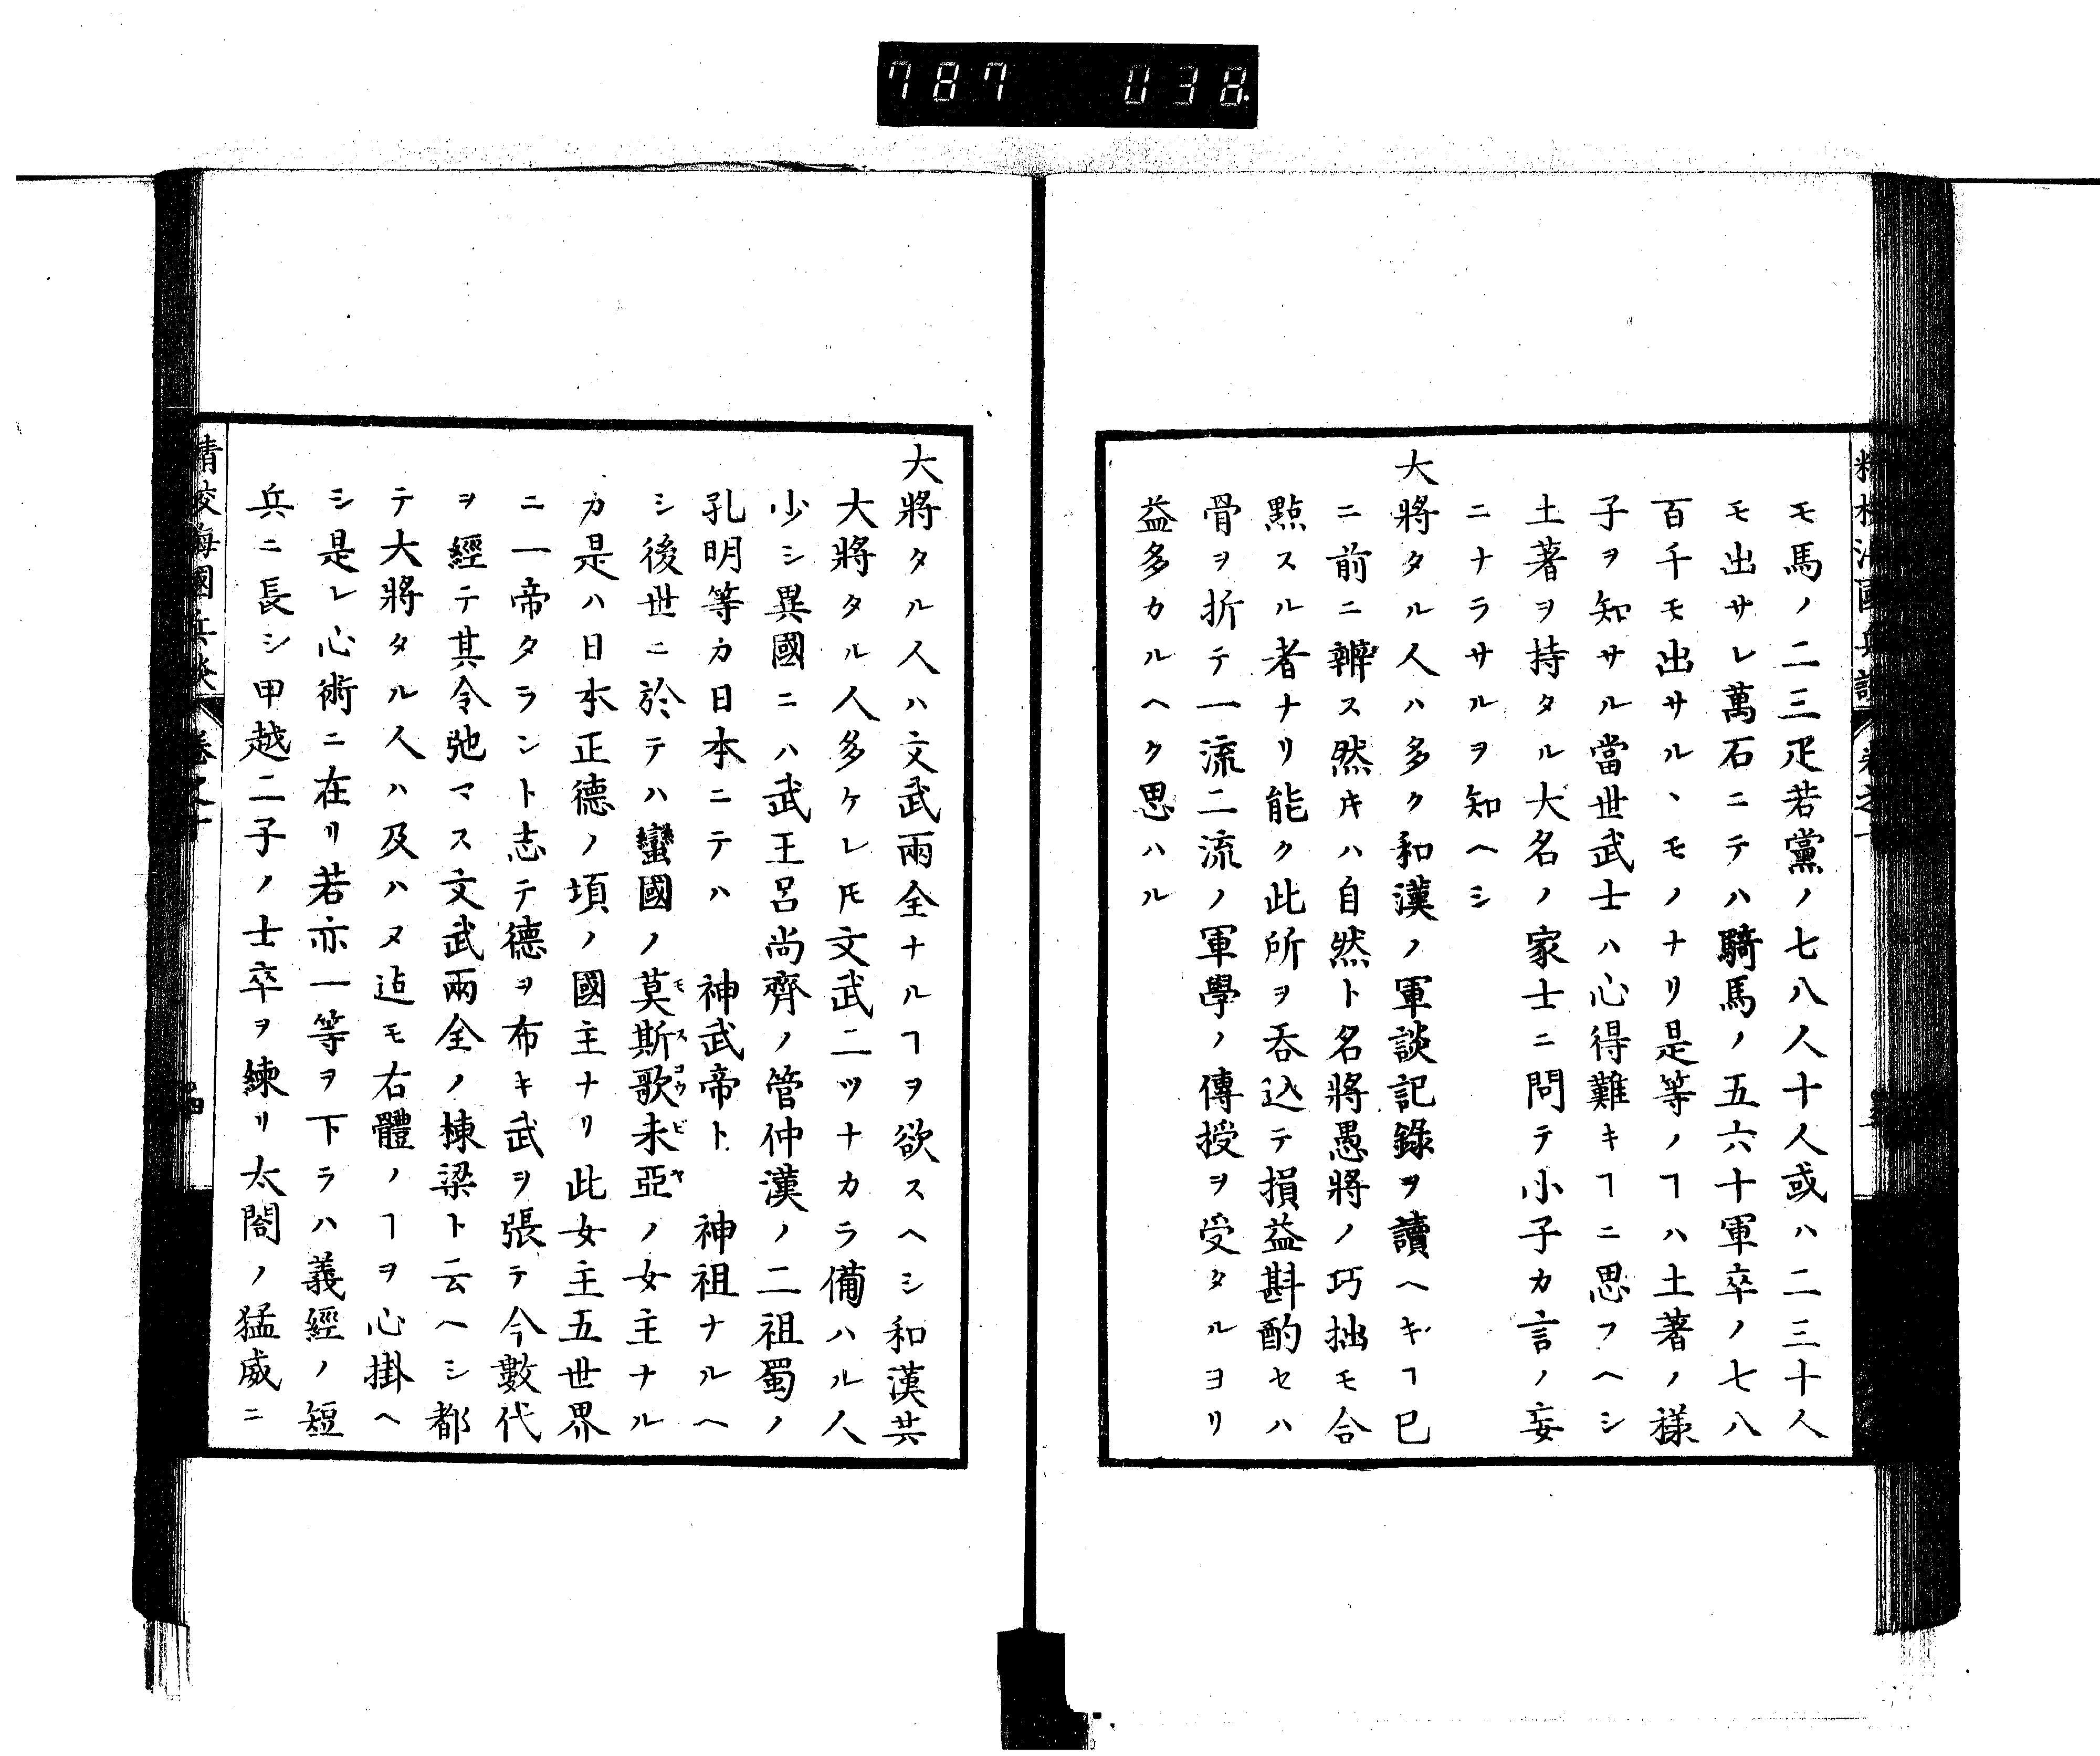 787 038
モ馬ノ二三疋若黨ノ七八人十人或ハ二三十人
モ出サレ萬石ニテハ騎馬ノ五六十軍卒ノ七八
百千モ出サルヽモノナリ是等ノヿハ土著ノ樣
子ヲ知サル當世武士ハ心得難キヿニ思フヘシ
土著ヲ持タル大名ノ家士ニ問テ小子カ言ノ妄
ニナラサルヲ知ヘシ
大將タル人ハ多ク和漢ノ軍談記錄ヲ讀ヘキヿ已
ニ前ニ辨ス然𪜈ハ自然ト名將愚將ノ巧拙モ合
點スル者ナリ能ク此所ヲ呑込テ損益斟酌セハ
骨ヲ折テ一流二流ノ軍學ノ傳授ヲ受タルヨリ
益多カルヘク思ハル
大將タル人ハ文武兩全ナルヿヲ欲スヘシ和漢共
大將タル人多ケレ𪜈文武二ツナカラ備ハル人
少シ異國ニハ武王呂尚齊ノ管仲漢ノ二祖蜀ノ
孔明等カ日本ニテハ　神武帝ト　神祖ナルヘ
シ後世ニ於テハ蠻國ノ莫斯歌未亞ノ女主ナル
カ是ハ日本正德ノ頃ノ國主ナリ此女主五世界
ニ一帝タラント志テ德ヲ布キ武ヲ張テ今數代
ヲ經テ其令弛マス文武兩全ノ棟梁ト云ヘシ都
テ大將タル人ハ及ハヌ迠モ右體ノヿヲ心掛ヘ
シ是レ心術ニ在リ若亦一等ヲ下ラハ義經ノ短
兵ニ長シ甲越二子ノ士卒ヲ練リ太閤ノ猛威ニ
精校海國兵談　卷之十